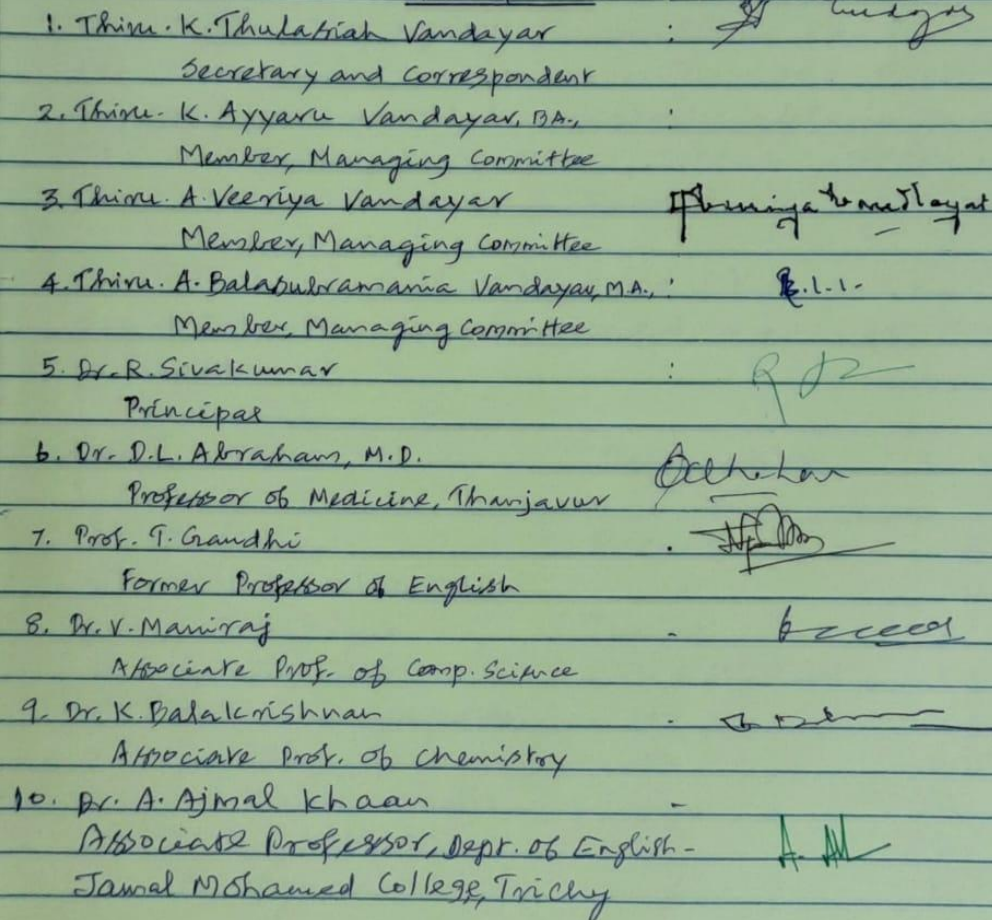 1. Thiru. K. Thulasiah Vandayar :
Secretary and Correspondent
2. Thiru. K. Ayyaru Vandayar, BA., :
Member, Managing Committee
3. Thiru. A. Veeriya Vandayar
Member, Managing Committee
4. Thiru. A. Balasubramania Vandayar, M.A., :
Member, Managing Committee
5. Dr. R. Sivakumar :
Principal
6. Dr. D.L. Abraham, M.D.
Professor of Medicine, Thanjavur
7. Prof. T. Gandhi .
Former Professor of English
8. Dr. V. Maniraj -
Associate Prof. of Comp. Science
9. Dr. K. Balakrishnan .
Associate Prof. of Chemistry
10. Dr. A. Ajmal Khaan -
Associate Professor, Dept. of English -
Jamal Mohamed College, Trichy